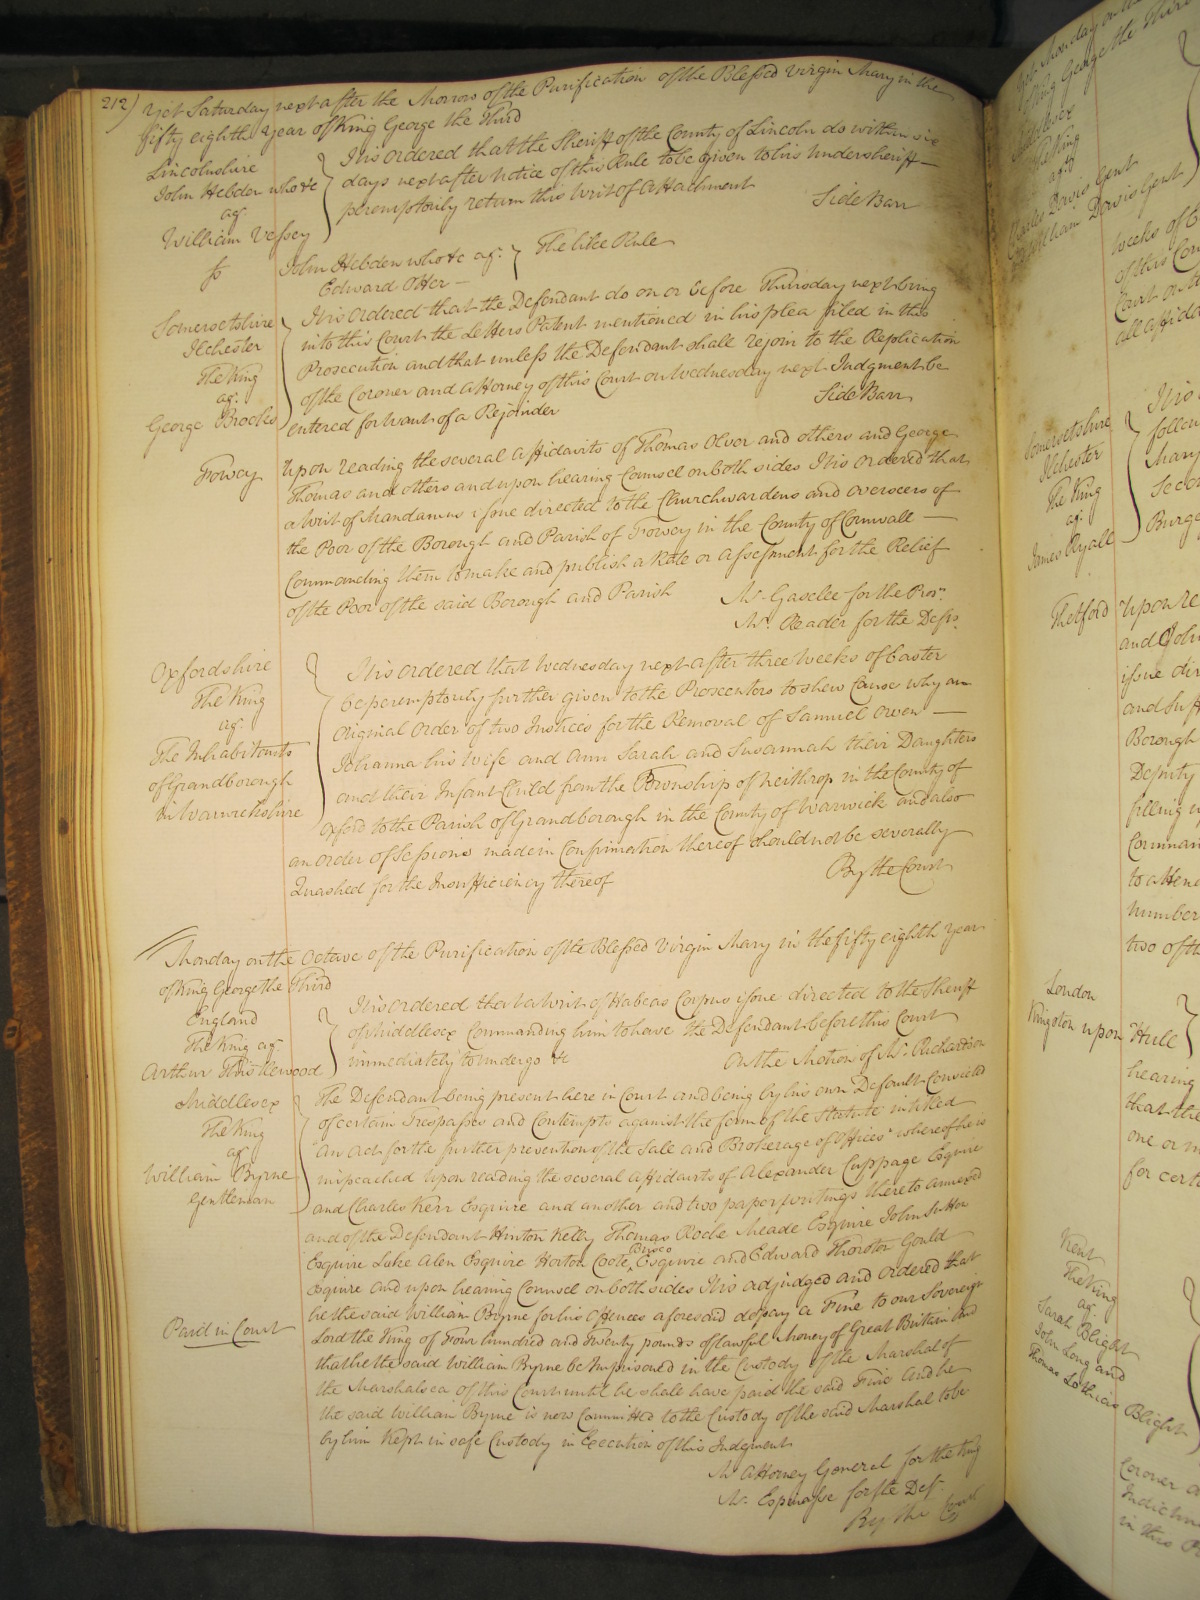 212) Yet Saturday next after the Morrow of the Purification of the Blessed Virgin Mary in the
fifty eighth Year of King George the Third
Lincolnshire
John Hebden who &c
agt.
William Vessey
It is ordered that the Sheriff of the County of Lincoln do within six
days next after Notice of this Rule to be given to his Undersheriff
peremptorily return this Writ of Attachment
Side Barr
So
John Hebden who &c agt.
Edward Otter
The like Rule
Somersetshire
Ilchester
The King
agt.
George Brooks
It is Ordered that the Defendant do on or before Thursday next bring
into this Court the Letters Patent mentioned in his plea filed in this
Prosecution and that unless the Defendant shall rejoin to the Replication
of the Coroner and Attorney of this Court on Wednesday next Judgment be
entered for want of a Rejoinder
Side Barr
Fowey
Upon reading the several Affidavits of Thomas Olver and others and George
Thomas and others and upon hearing Counsel on both sides It is Ordered that
a Writ of Mandamus issue directed to the Churchwardens and Overseers of
the Poor of the Borough and Parish of Fowey in the County of Cornwall
Commanding them to make and publish a Rate or Assessment for the Relief
of the Poor of the said Borough and Parish
Mr. Gaselee for the Pror.
Mr. Reader for the Defts.
Oxfordshire
The King
agt.
The Inhabitants
of Grandborough
in Warwickshire
It is Ordered that Wednesday next after three Weeks of Easter
be peremptorily further given to the Prosecutors to shew Cause why an
Original Order of two Justices for the Removal of Samuel Owen
Johanna his Wife and Ann Sarah and Susannah their Daughters
and their Infant Child from the Township of Neithrop in the County of
Oxford to the Parish of Grandborough in the County of Warwick and also
an Order of Sessions made in Confirmation thereof should not be severally
Quashed for the Insufficiency thereof
By the Court
Monday on the Octave of the Purification of the Blessed Virgin Mary in the fifty eighth Year
of King George the Third
England
The King agt.
Arthur Thistlewood
It is Ordered that a Writ of Habeas Corpus issue directed to the Sheriff
of Middlesex Commanding him to have the Defendant before this Court
immediately to undergo &c
On the Motion of Mr. Richardson
Middlesex
The King
agt.
William Byrne
Gentleman
The Defendant being present here in Court and being by his own Default Convicted
of certain Trespasses and Contempts against the form of the Statute intitled
"An Act for the further prevention of the Sale and Brokerage of Offices" whereof he is
impeached Upon reading the several Affidavits of Alexander Cuppage Esquire
and Charles Kerr Esquire and another and two paper writings thereto annexed
and of the Defendant Hinton Kelly Thomas Roche Meade Esquire John Sutton
Esquire Luke Alen Esquire Horton Coote Esquire and Edward Thoroton Gould
Esquire and upon hearing Counsel on both sides It is adjudged and Ordered that
he the said William Byrne for his Offences aforesaid do pay a Fine to our Sovereign
Paid in Court
Lord the King of Four hundred and Twenty pounds of lawful Money of Great Britain and
that he the said William Byrne be Imprisoned in the Custody of the Marshal of
the Marshalsea of this Court until he shall have paid the said Fine And he
the said William Byrne is now Committed to the Custody of the said Marshal to be
by him Kept in safe Custody in Execution of this Judgment
Mr. Attorney General for the King
Mr. Espinasse for the Deft.
By the Court
Somersetshire
Ilchester
The King
agt.
James Ryall
It is
follow
Mary
Secon
Burge
Thetford
Upon re
and John
issue dir
and Suff
Borough
Deputy
filling u
Comman
to attend
number
two of th
London
Kingston upon Hull
hearing
that the
one or m
for certa
Kent
The King
agt.
Sarah Blight
John Long and
Thomas Blight
Coroner a
Indictm
in this P